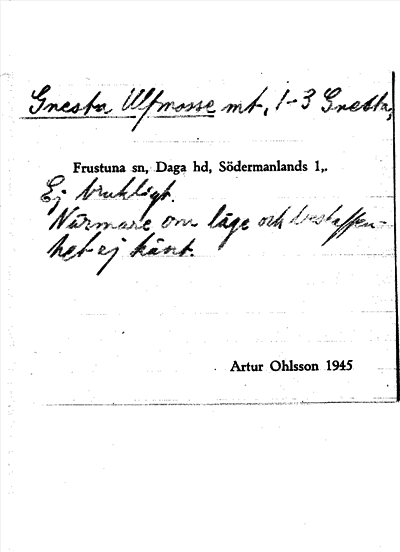 Gnesta Ulfmosse mt, 1-3 Gnesta,
Frustuna sn, Daga hd, Södermanlands l,.
Ej brukligt.
Närmare om läge och beskaffen-
het ej känt.
Artur Ohlsson 1945